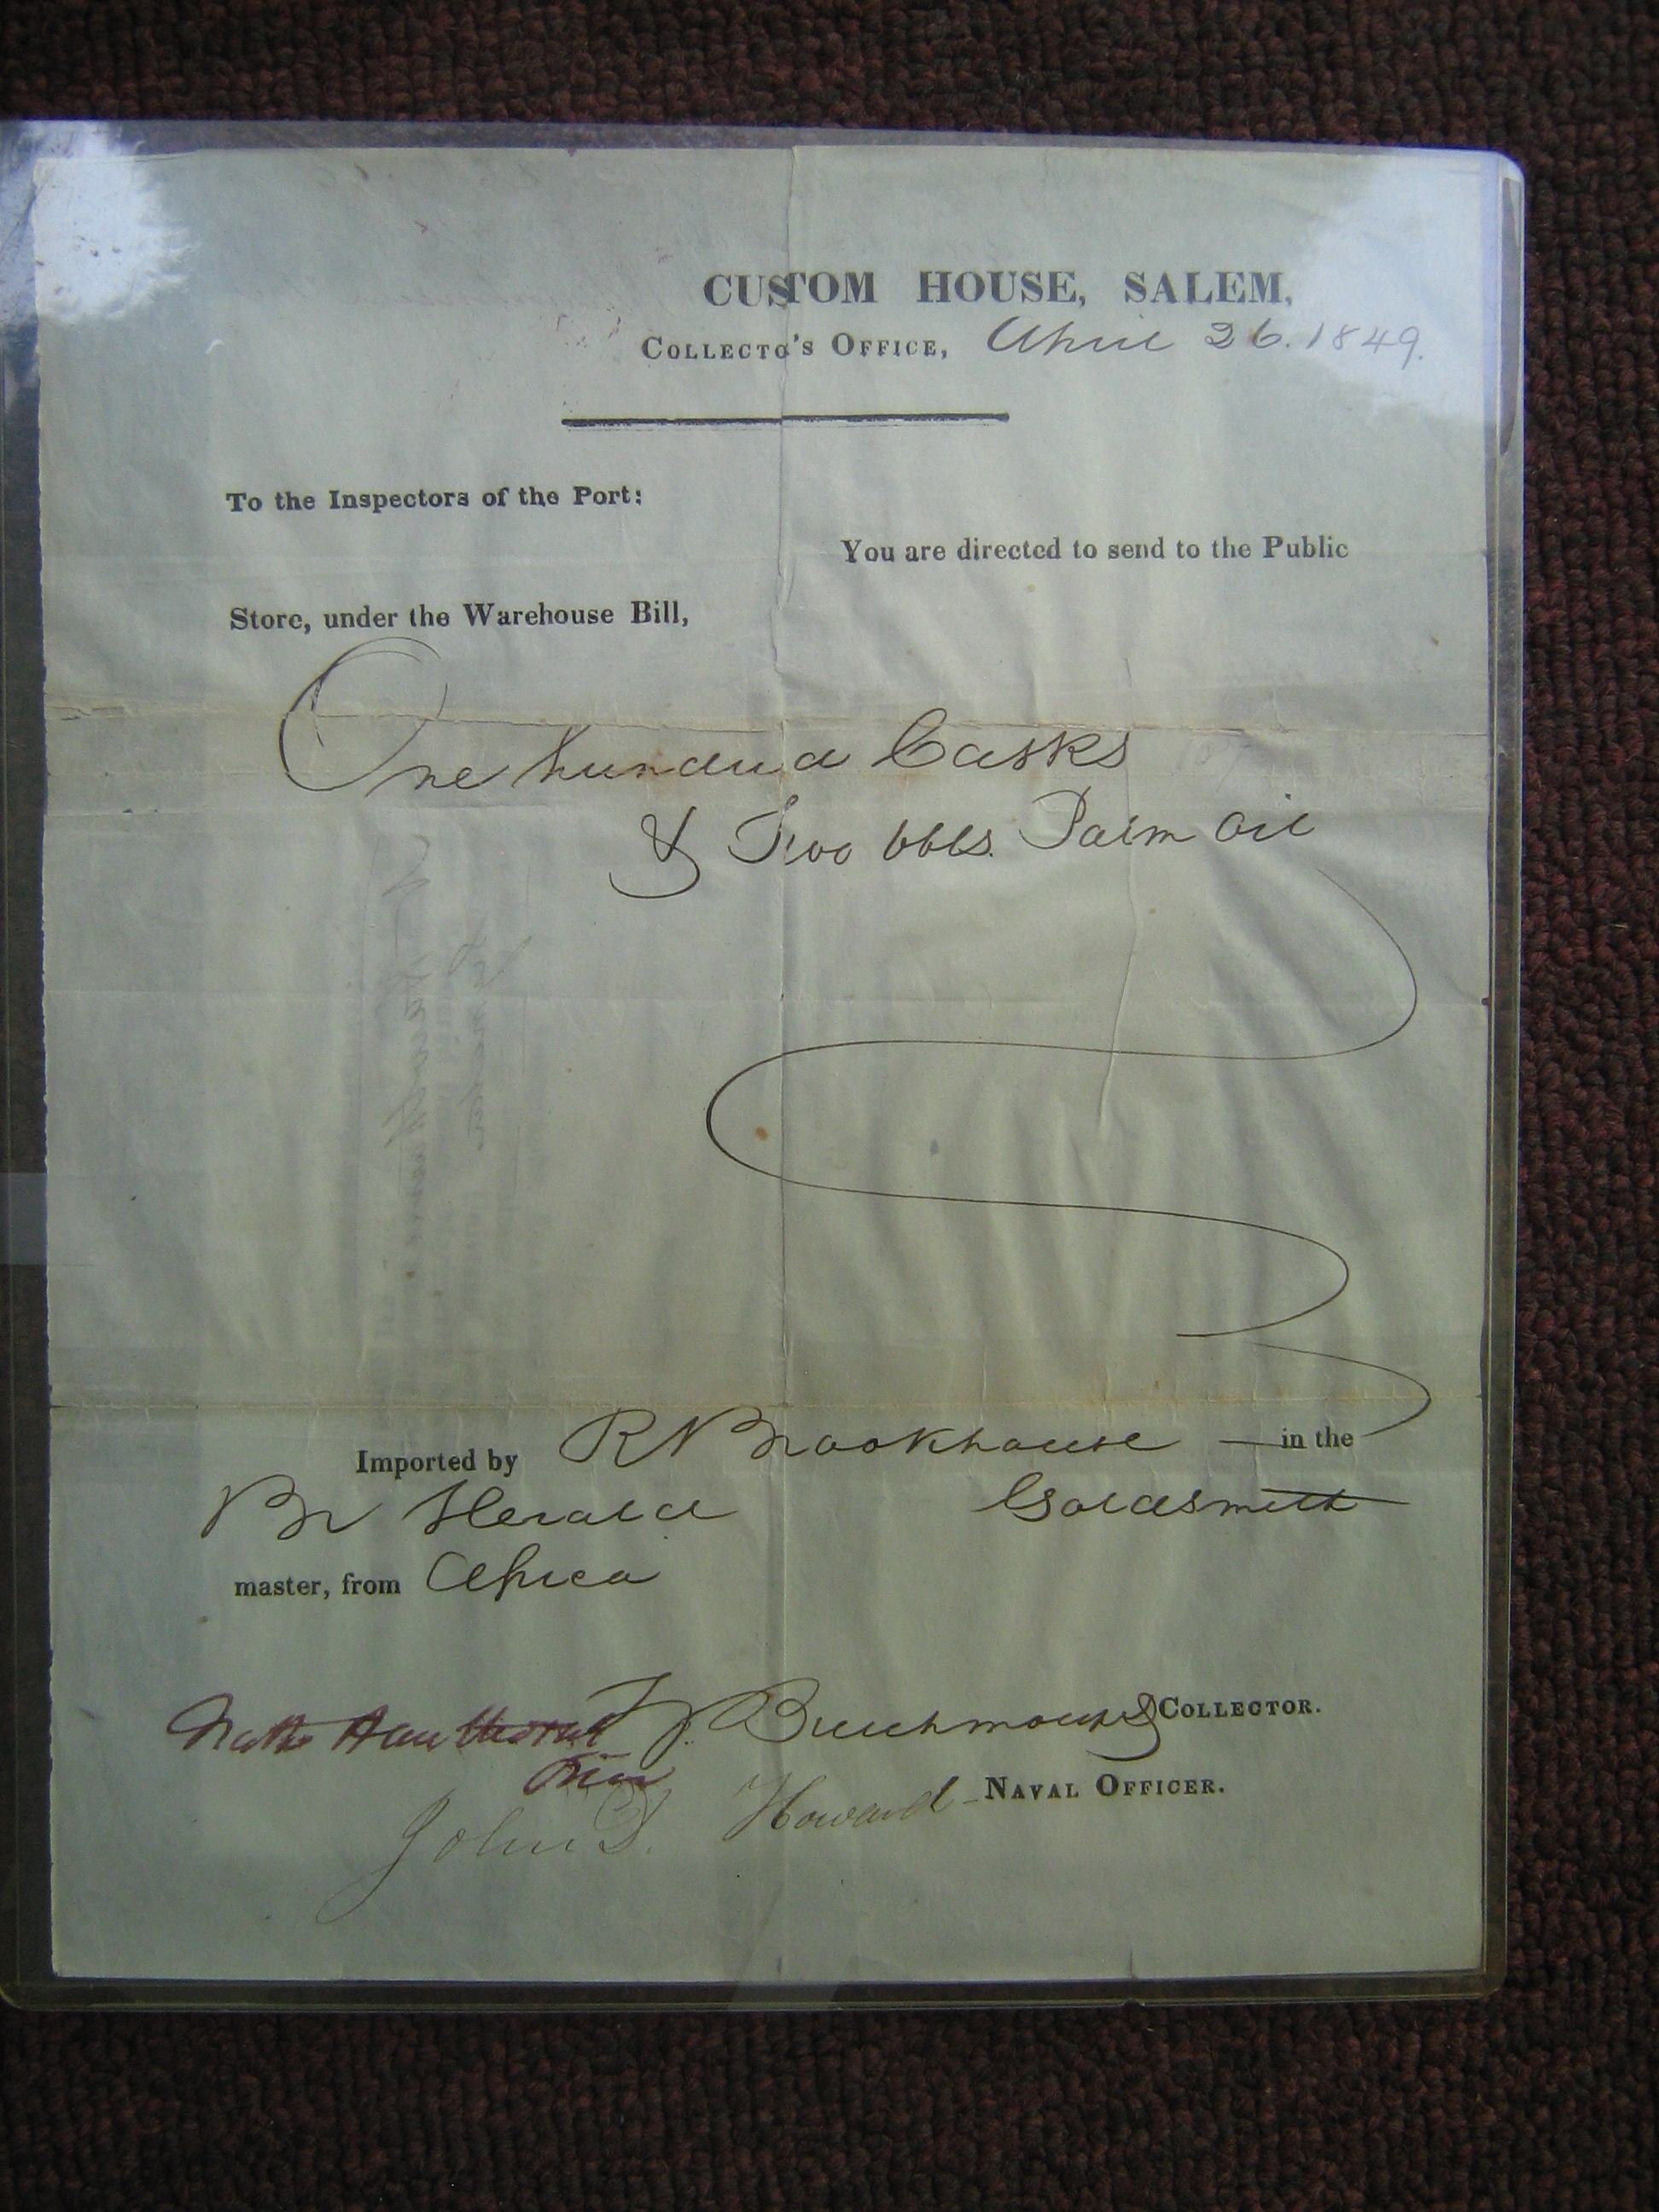 CUSTOM HOUSE, SALEM,
COLLECTO'S OFFICE, April 26. 1849.
To the Inspectors of the Port:
You are directed to send to the Public
Store, under the Warehouse Bill,
One hundred Casks
& Two bbls. Palm Oil
Imported by R Brookhouse — in the
Br Herald Goldsmith
master, from Africa
Nath Hawthorne
COLLECTOR.
John D. Howard NAVAL OFFICER.